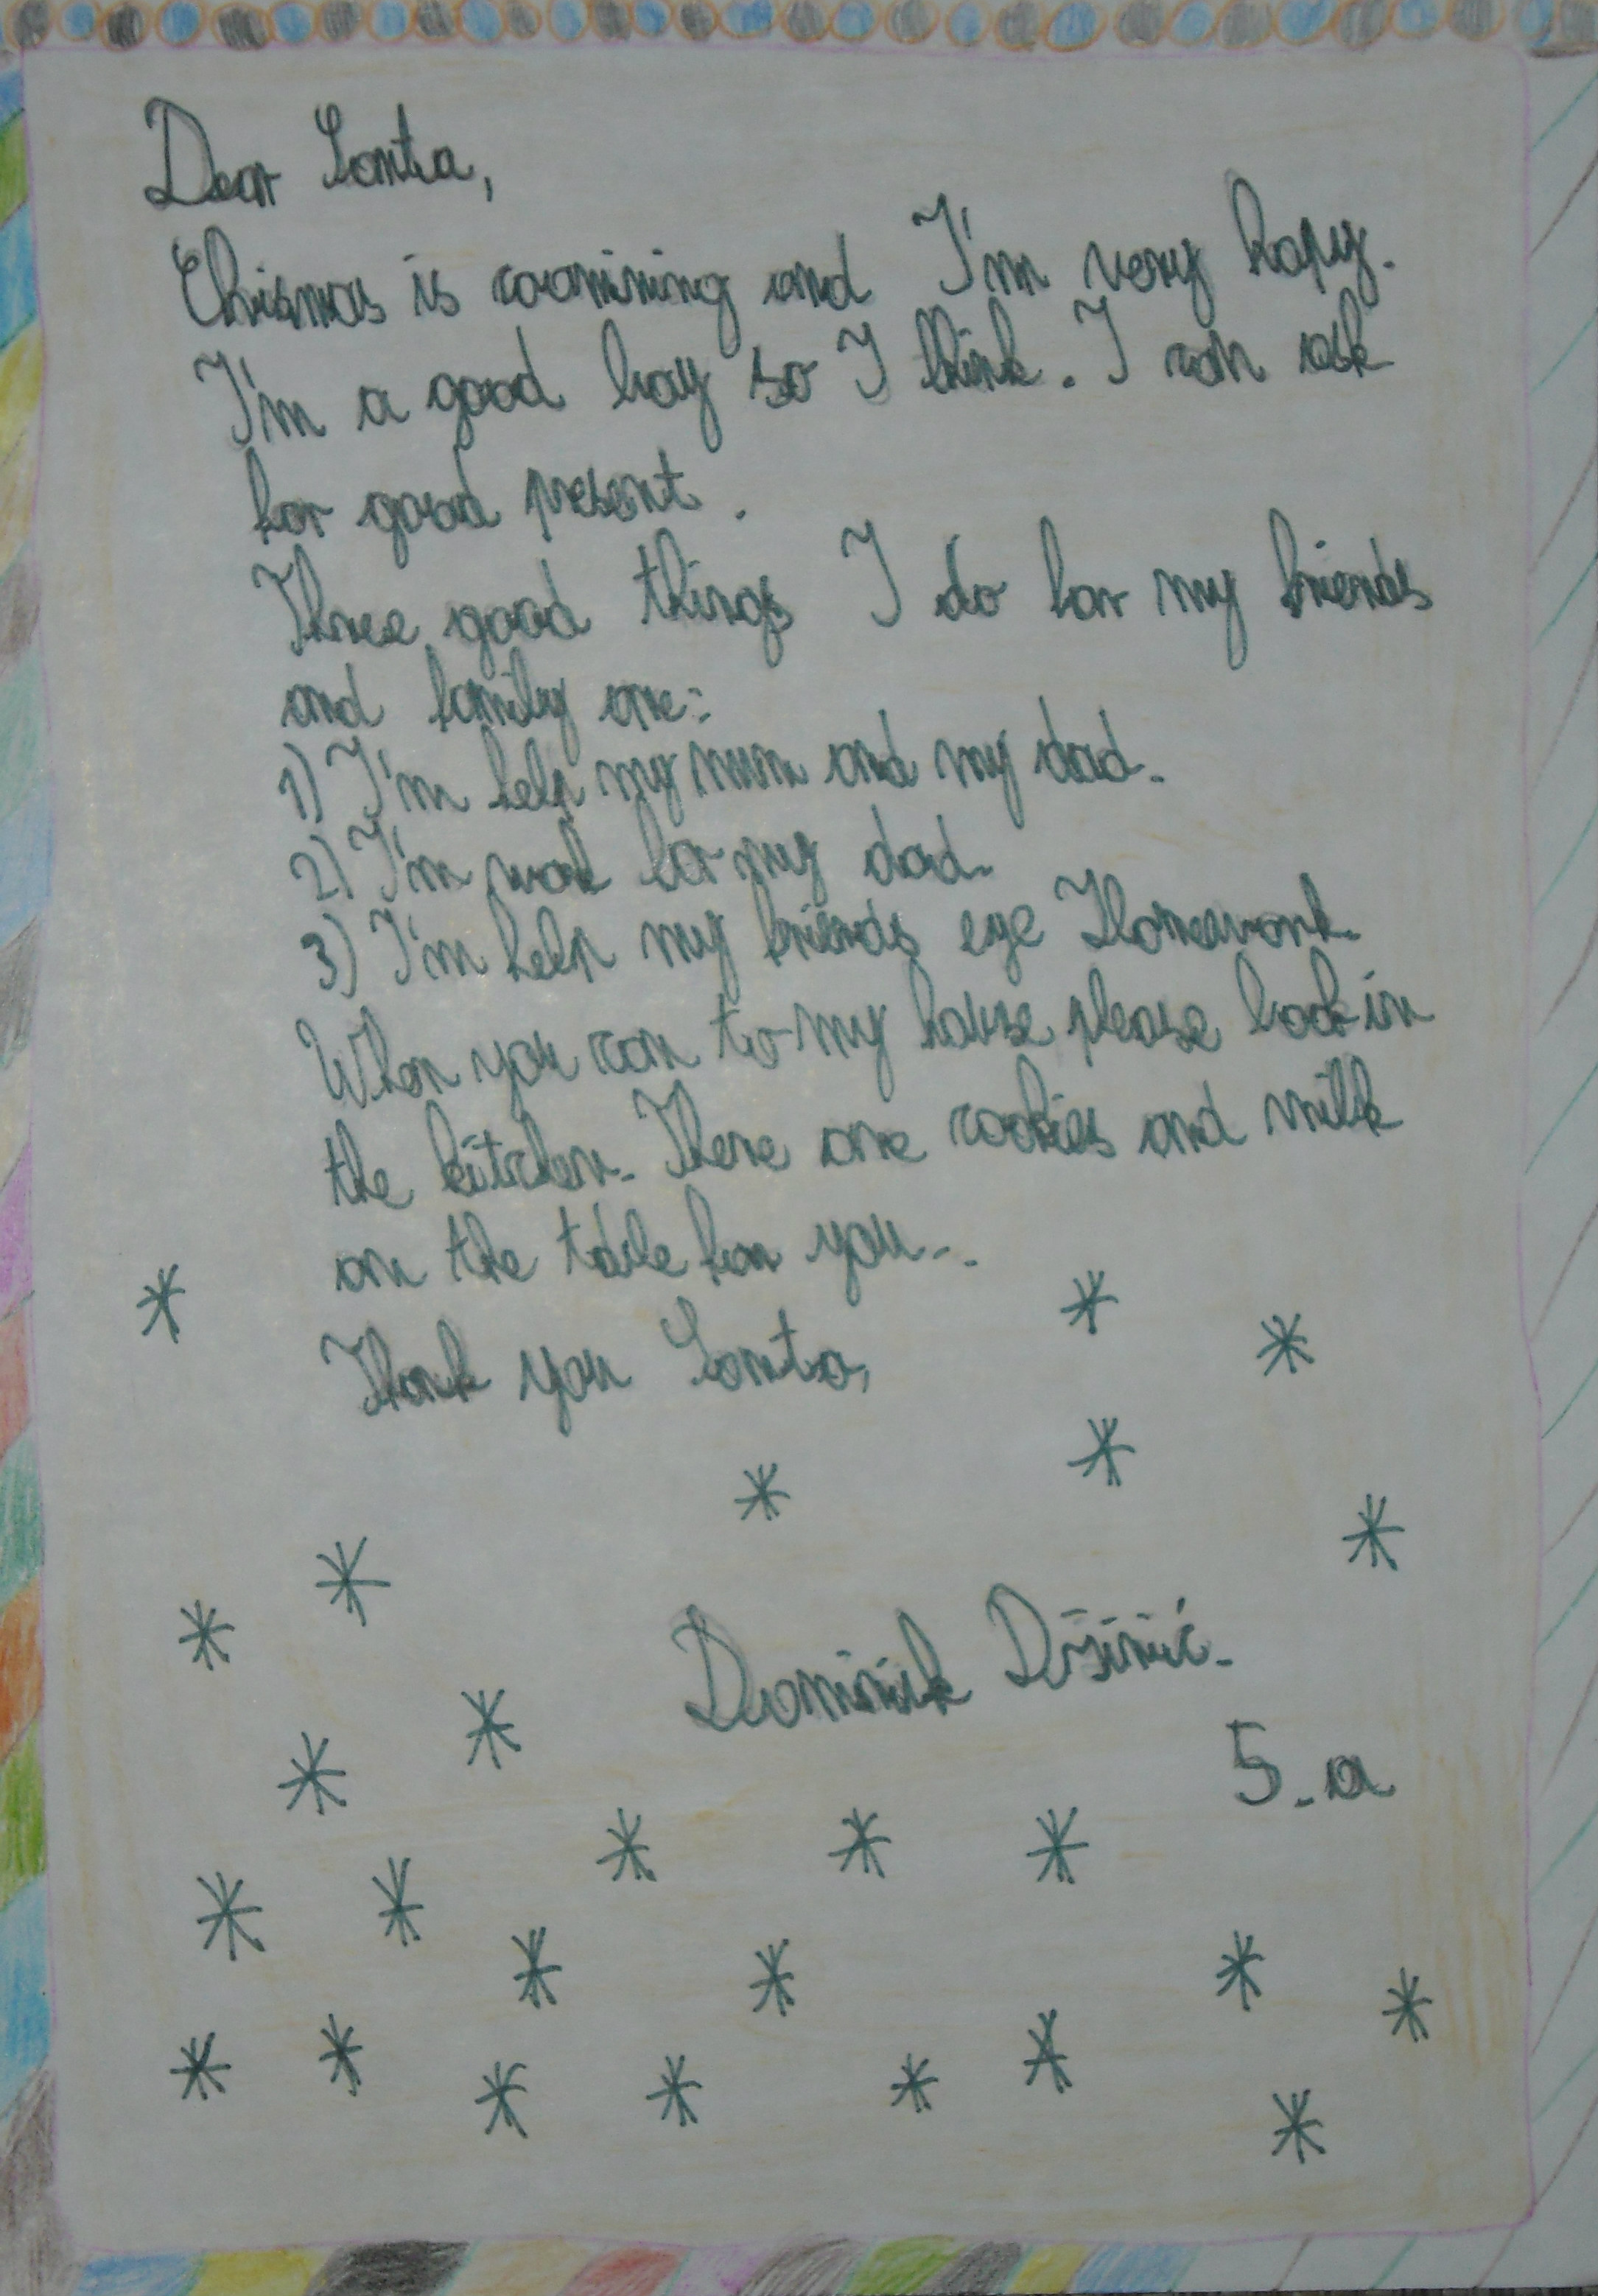 Dear Santa,
Chrismas is coomining and I'm very hapy.
I'm a good boy so I think. I can ask
for good present.
Three good things I do for my friends
and family are:
1) I'm help my mum and my dad.
2) I'm work for my dad.
3) I'm help my friends Homework.
When you com to my house please look in
the kitchen. There are cookies and milk
on the table for you..
Thank you Santa,
Dominik
5. a